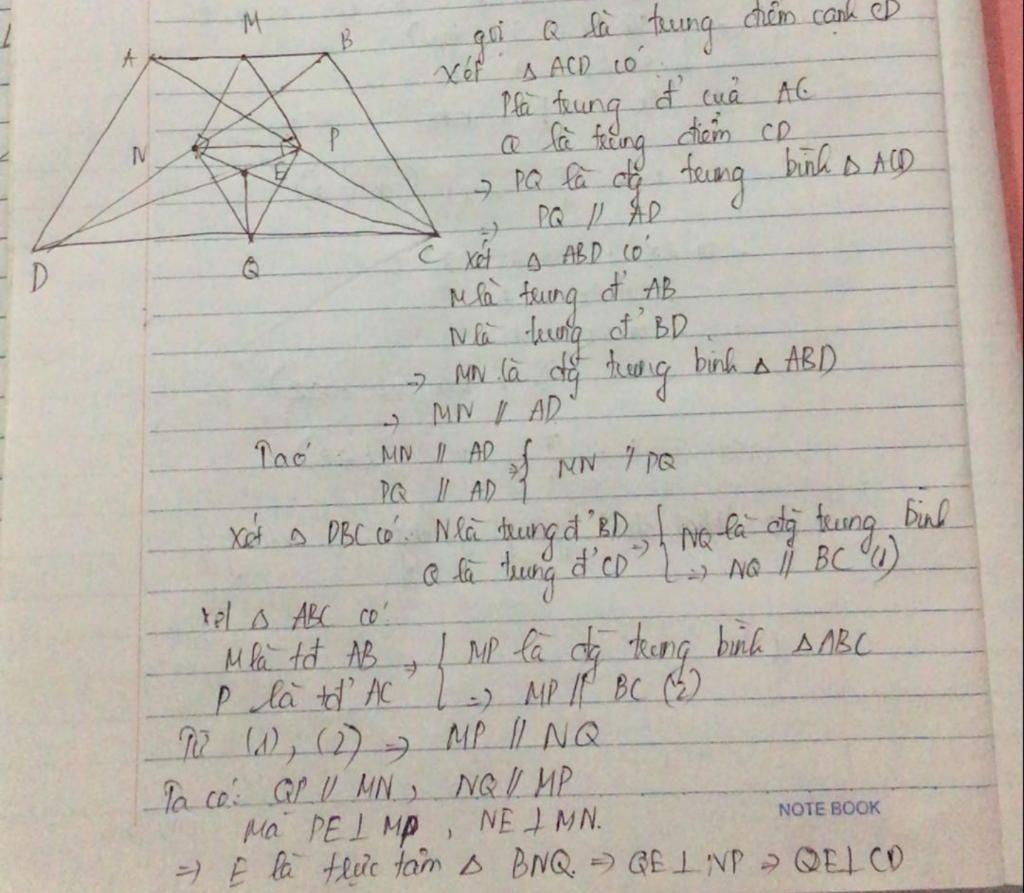 M
A
B
N
P
E
D
Q
C
gọi Q là trung điểm cạnh CD
Xét Δ ACD có
P là trung đ' của AC
Q là trung điểm CD
⇒ PQ là đg trung bình Δ ACD
⇒ PQ // AD
Xét Δ ABD có
M là trung đ' AB
N là trung đ' BD
⇒ MN là đg trung bình Δ ABD
⇒ MN // AD
Ta có: MN // AD
PQ // AD } ⇒ MN // PQ
Xét Δ DBC có: N là trung đ' BD
Q là trung đ' CD ⇒ { NQ là đg trung bình
⇒ NQ // BC (1)
xét Δ ABC có:
M là tđ AB
P là tđ' AC ⇒ { MP là đg trung bình Δ ABC
⇒ MP // BC (2)
Từ (1), (2) ⇒ MP // NQ
Ta có: QP // MN, NQ // MP
Mà PE ⊥ MP, NE ⊥ MN.
⇒ E là trực tâm Δ BNQ. ⇒ QE ⊥ NP ⇒ QE ⊥ CD
NOTE BOOK